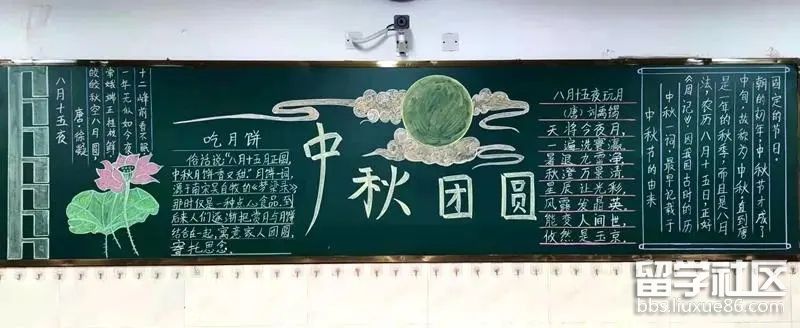 八月十五夜
唐·徐凝
皎皎秋空八月圆,
常娥端正桂枝鲜
一年无似如今夜
十二峰前看不眠
吃月饼
俗话说“八月十五月正圆,
中秋月饼香又甜”月饼一词,
源于南宋吴自牧的《梦梁录》
那时仅是一种点心食品,到
后来人们逐渐把赏月与月饼
结合在一起,寓意家人团圆,
寄托思念。
中秋团圆
八月十五夜玩月
(唐)刘禹锡
天将今夜月,
一遍洗寰瀛。
暑退九霄净,
秋澄万景清。
星辰让光彩,
风露发晶英。
能变人间世,
攸然是玉京。
中秋节的由来
中秋一词,最早记载于
《周礼》,因我国古时的历
法,农历八月十五日,正好
是一年的秋季,而且是八月
中旬,故称为“中秋”,直到唐
朝的初年,中秋节才成了
固定的节日。
留学社区
bbs.liuxue86.com